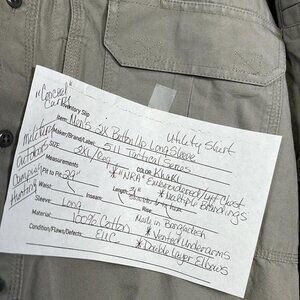 "Conceal Carry"
Inventory Slip
Item: Men's 2X Button Up Long Sleeve
Utility Shirt
Maker/Brand/Label: 5.11 Tactical Series
Military
Outdoor
Camping
Hunting
SIZE: 2XL/Reg COLOR: Khaki
Measurements
* "NRA" Embroidered/Left Chest
Pit to Pit: 29" * Multiple Brandings
Waist: Inseam: Length: 34"
Sleeve: Long Rise:
Made in Bangladesh
Material: 100% Cotton * Vented Underarms
Condition/Flaws/Defects: EUC * Double Layer Elbows